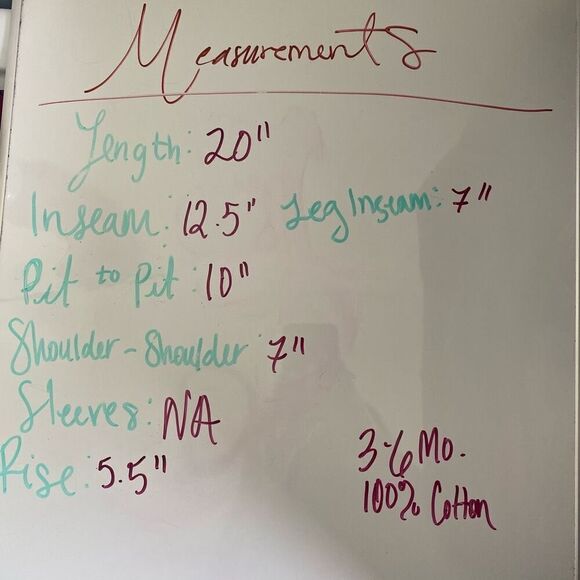 Measurements
Length: 20"
Inseam: 12.5" Leg Inseam: 7"
Pit to Pit: 10"
Shoulder-Shoulder: 7"
Sleeves: NA
Rise: 5.5"
3-6 Mo.
100% Cotton